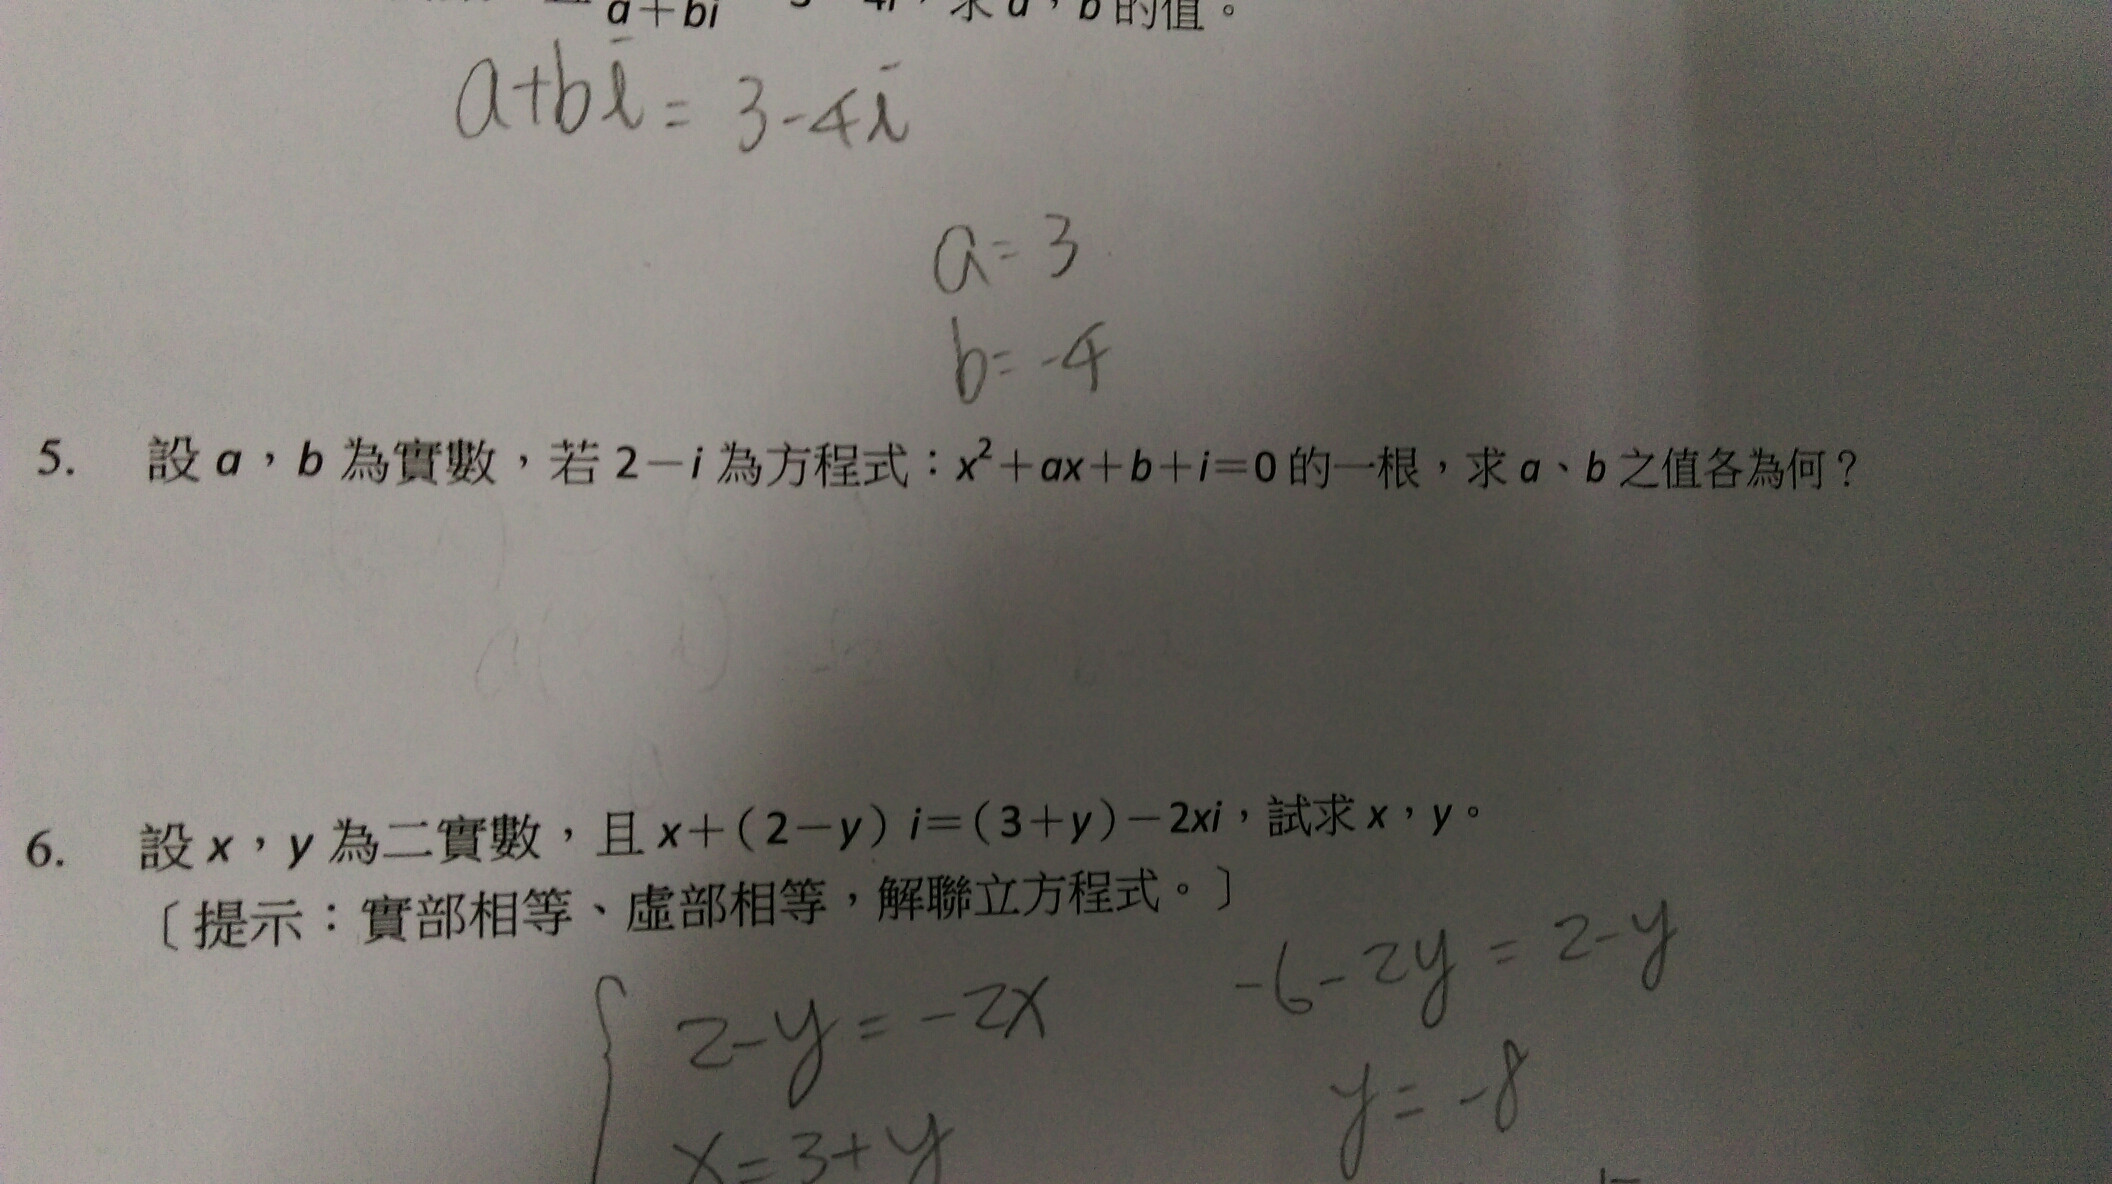 a+bi 3-4i，求 a，b 的值。
a+bi = 3-4i
a=3
b=-4
5. 設 a，b 為實數，若 2－i 為方程式：x²＋ax＋b＋i＝0 的一根，求 a、b 之值各為何？
6. 設 x，y 為二實數，且 x＋(2－y) i＝(3＋y)－2xi，試求 x，y。
〔提示：實部相等、虛部相等，解聯立方程式。〕
2-y=-2x
-6-2y=2-y
x=3+y
y=-8